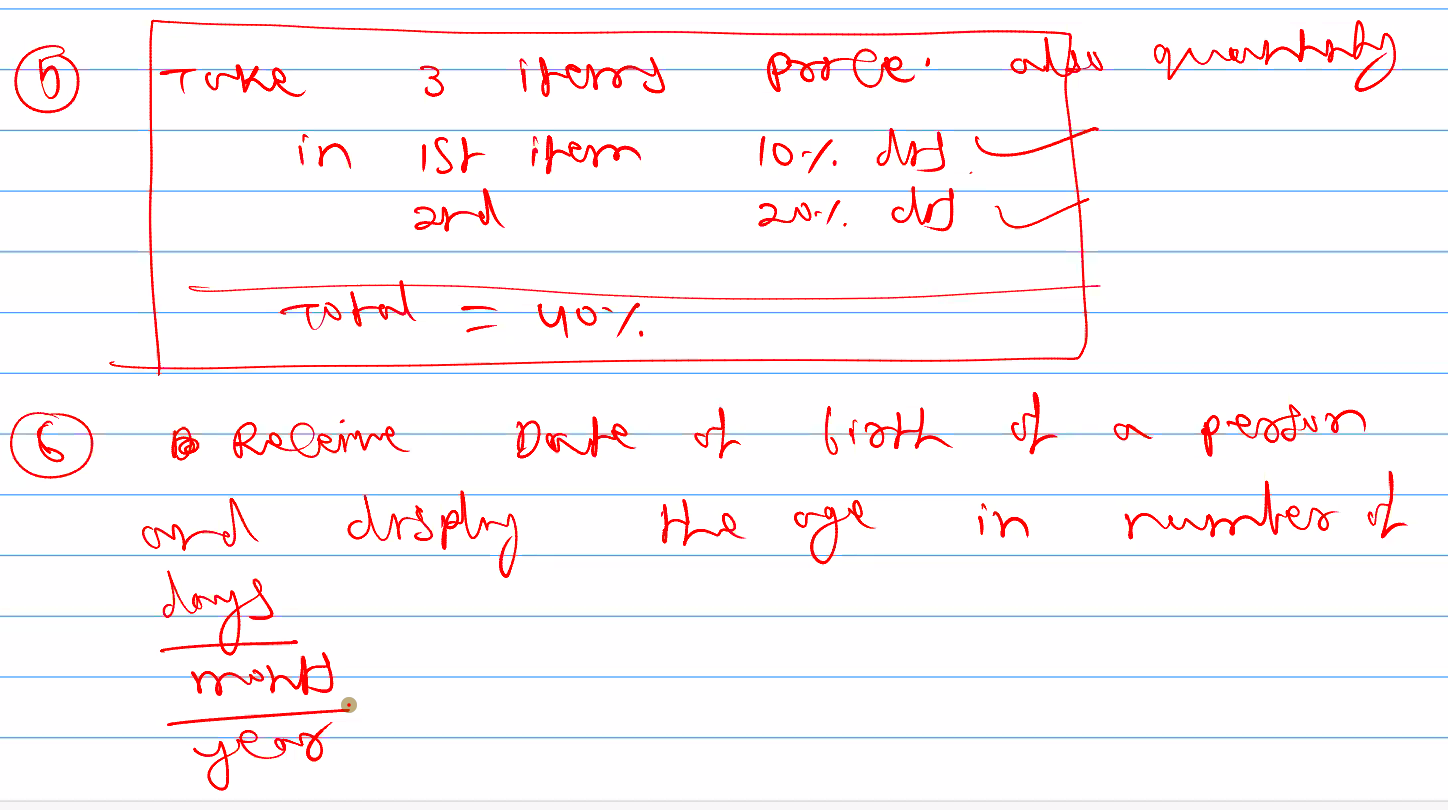 5 Take 3 items price. also quantity
in 1st item 10% dis
2nd 20% dis
Total = 40%
6 Receive Date of birth of a person
and display the age in number of
days
month
year